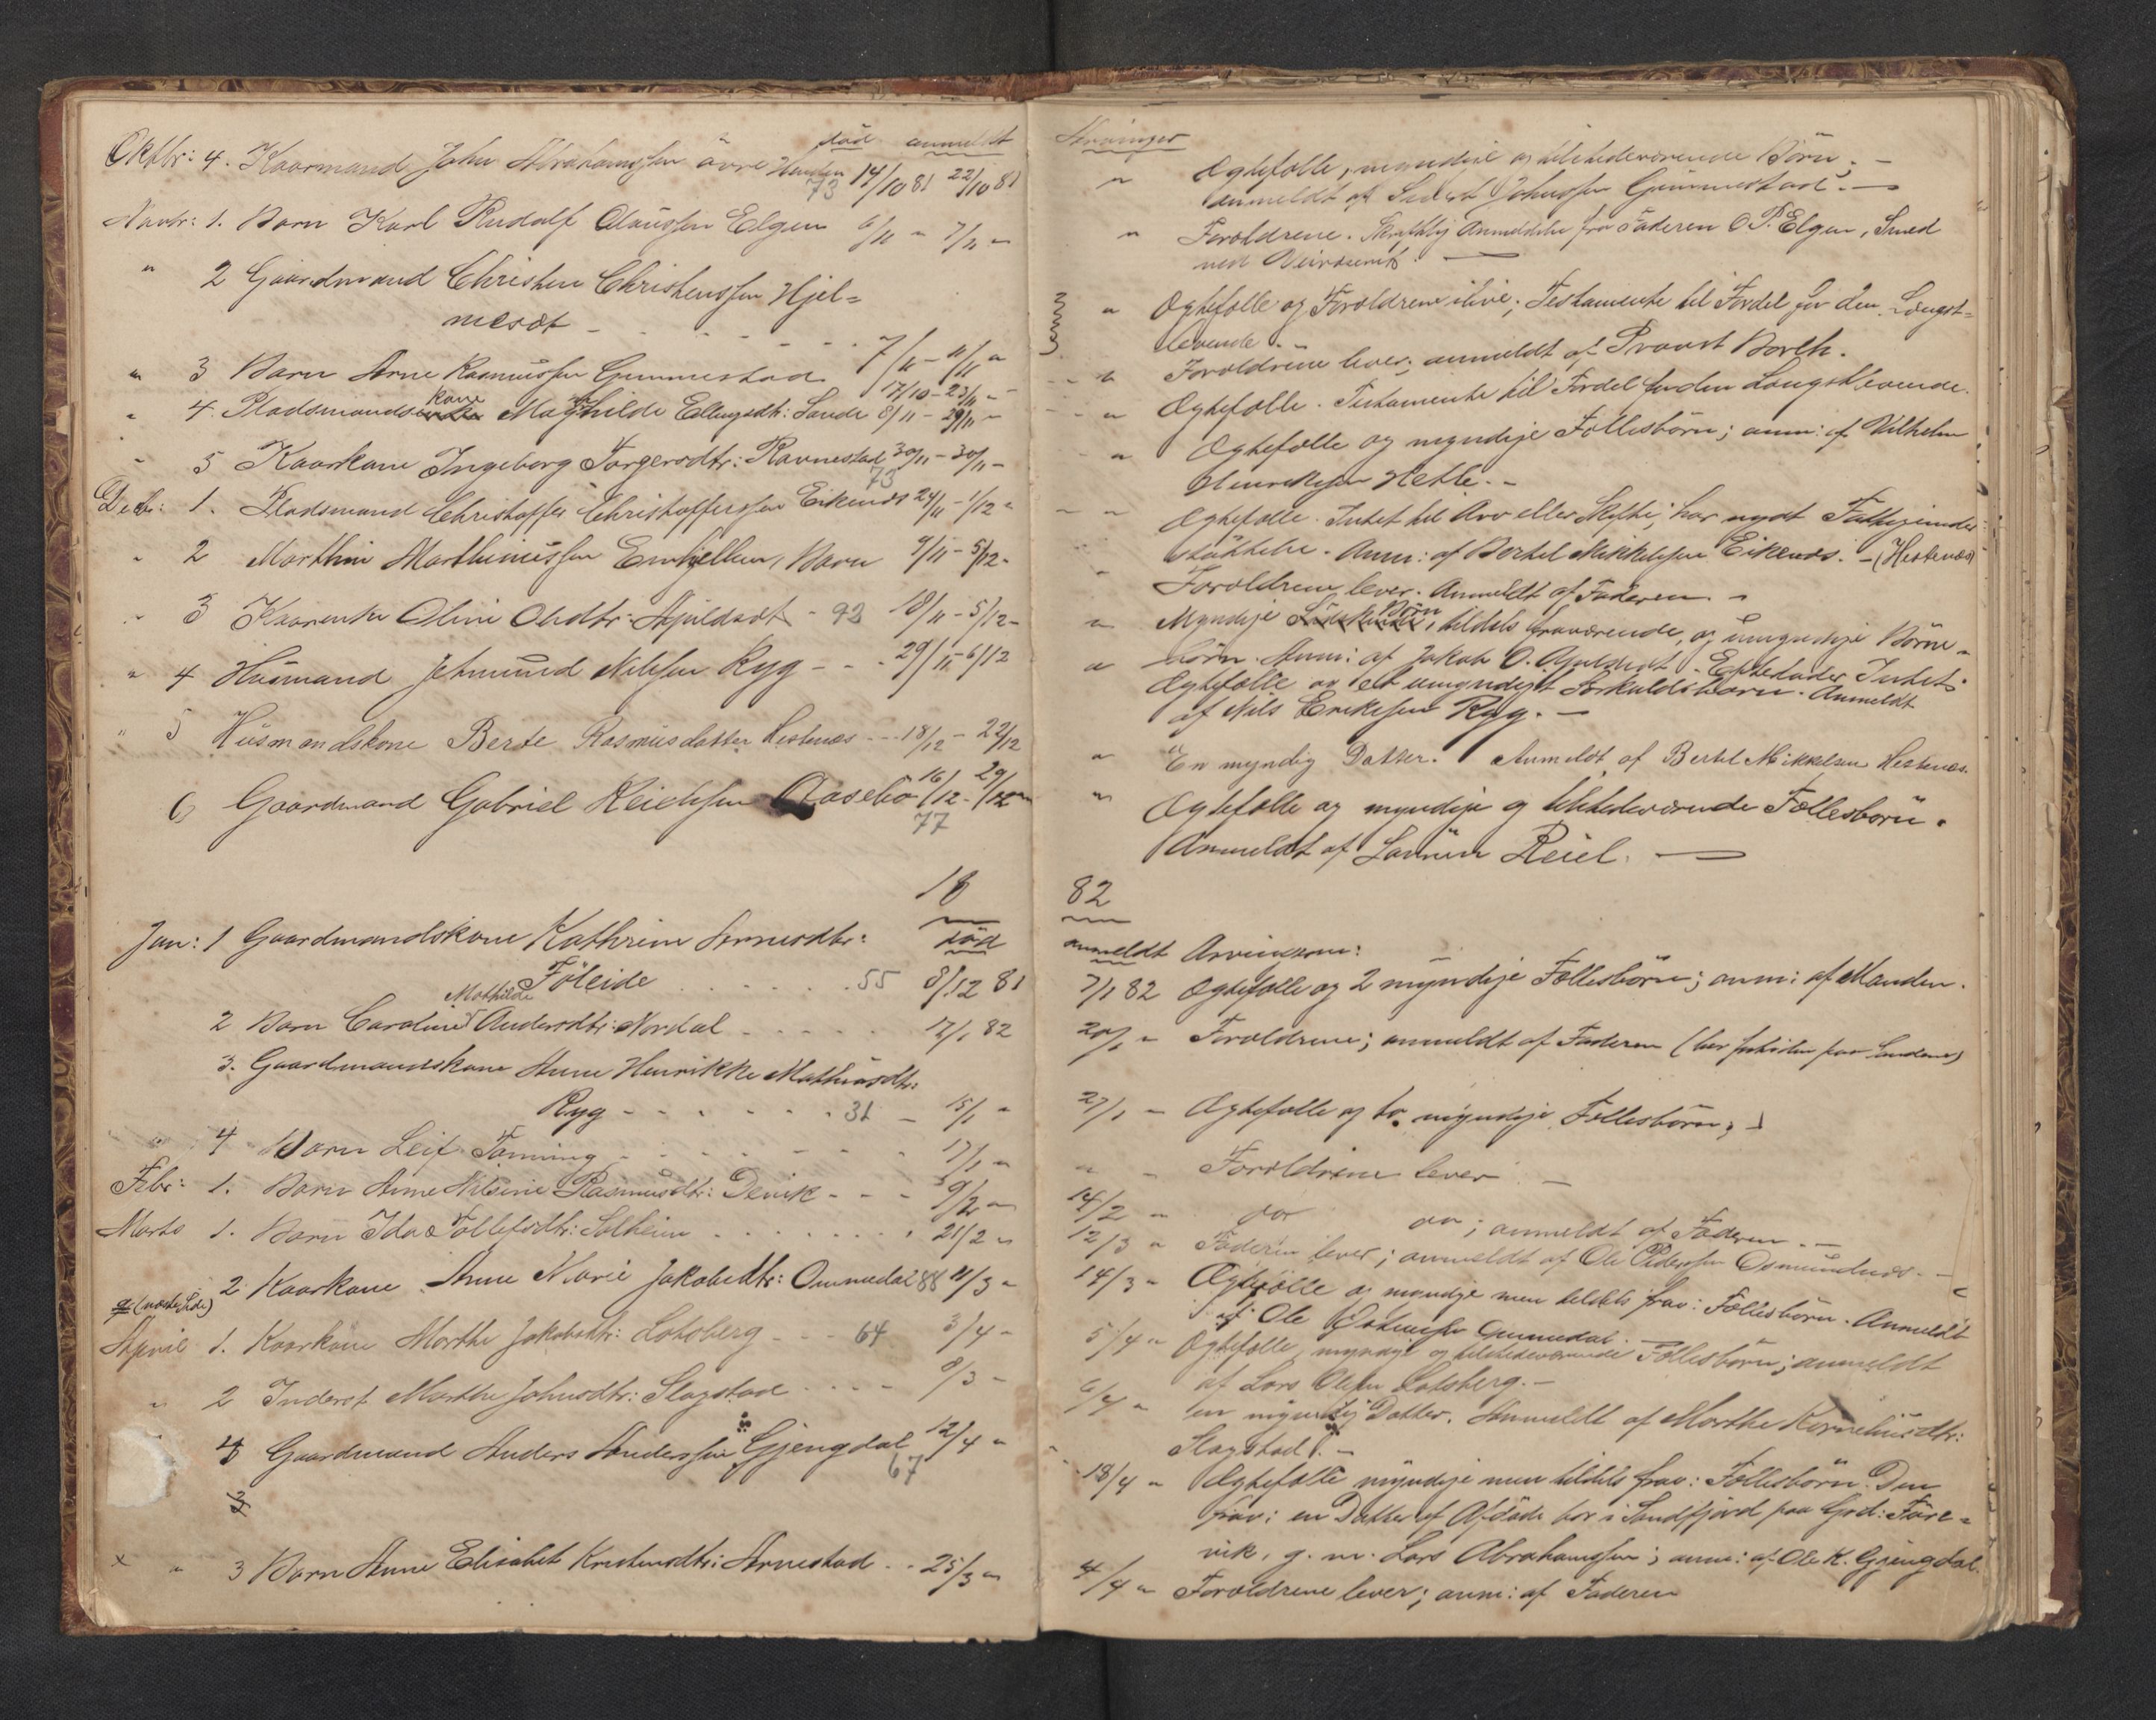 död anmeldt
Oktbr: 4. Kaarmand John Abrahamssen övre Hunden 14/10 81 22/10 81
73
Novbr: 1. Barn Karl Rudolf Olaussen Elgen 6/11 " 7/11 "
" 2 Gaardmand Christen Christenssen Hjel=
mesæt - - - - - 7/11 - 11/11 "
" 3 Barn Arne Rasmussen Gimmestad 17/10 - 23/11 "
kone
" 4. Pladsmands Maghilde Ellingsdtr: Sande 8/11 - 29/11 -
" 5 Kaarkone Ingeborg Torgersdtr: Ravnestad 30/11 - 30/11 -
73
Decbr: 1. Pladsmand Christoffer Christofferssen Eikenæs 24/11 - 1/12 "
" 2 Marthin Marthinussen Emhjellen, Barn 9/11 - 5/12 -
" 3 Kaarenke Oline Olsdtr: Apildsæt - 92 18/11 - 5/12 -
" 4 Husmand Jetmund Nilssen Ryg - - - 29/11 - 6/12
" 5 Husmandskone Berte Rasmusdatter Hestenæs - - 18/12 - 22/12
6 Gaardmand Gabriel Reielssen Aasebö 16/12 - 29/12 "
77
18
död
Jan: 1 Gaardmandskone Kathrine Arnesdtr:
Föleide . . . . . . 55 8/12 81
Mathilde
2 Barn Caroline Andersdtr: Nordal - - - - 12/1 82
3. Gaardmandskone Anne Henrikke Mathiasdtr:
Ryg - - - - - - 31 - 15/1 "
" 4 Barn Leif Fanning - - - - - - 17/1 "
Febr: 1. Barn Anne Nilsine Rasmusdtr: Devik - - - 9/2 "
Marts 1. Barn Ida Tollefsdtr: Solheim . . . . . . 21/2 "
2 Kaarkone Anne Marie Jakobsdtr: Ommedal 88 11/3 "
(næste Side)
April 1. Kaarkone Marthe Jakobsdtr: Lotsberg - - - 64 3/4 -
" 2 Inderst Marthe Johnsdtr: Slagstad . . . - 9/3 -
4 Gaardmand Anders Anderssen Gjengdal 12/4 "
67
3
x " 3 Barn Anne Elisabet Kristensdtr: Arnestad - - 25/3 "
Arvinger
" Ægtefælle, myndige og tilstedeværende Börn. -
anmeldt af Sivert Johnssen Gimmestad. -
" Forældrene. Skriftlig Anmeldelse fra Faderen O P. Elgen, Smed
ved
" Ægtefælle og Forældrene ilive; Testamente til Fordel for den Længst=
levende. -
" Forældrene lever; anmeldt af Provst Borch.
" Ægtefælle. Testamente til Fordel for den Længstlevende.
" Ægtefælle og myndige Fællesbörn; anm: af Vilhelm
Henrikssen Hetle. -
" Ægtefælle. Intet til Arv eller Skifte; har nydt Fattigunder
stöttelse. Anm: af Bertel Mikkelssen Eikenæs. - (Hestenæs)
" Forældrene lever. Anmeldt af Faderen. -
Börn
" Myndige tildels fraværende, og umyndige Börne-
börn. Anm: af Jakob O. Apildsæt. Efterlader Intet.
" Ægtefælle og et umyndigt Særkuldsbarn. Anmeldt
af Nils Erikssen Ryg. -
" En myndig Datter. Anmeldt af Bertel Mikkelsen Hestenæs.
" Ægtefælle og myndige og tilstedeværende Fællesbörn.
Anmeldt af Reiel. -
82
anmeldt Arvingerne:
7/1 82 Ægtefælle og 2 myndige Fællesbörn; anm: af Manden.
20/1 " Forældrene; anmeldt af Faderen
27/1 - Ægtefælle og to myndige Fællesbörn;
" - Forældrene lever -
14/2 " do do; anmeldt af Faderen. -
12/3 " Faderen lever; anmeldt af Ole Pederssen Osmundnæs. -
14/3 " Ægtefælle og myndige men tildels frav: Fællesbörn. Anmeldt
af Ole Ommedal. -
5/4 " Ægtefælle, myndige og tilstedeværende Fællesbörn; anmeldt
af Lars Olssen Lotsberg. -
6/4 " En myndig Datter. Anmeldt af Marthe Korneliusdtr:
Slagstad. -
18/4 " Ægtefælle myndige men tildels frav: Fællesbörn. Den
frav: en Datter af Afdöde bor i Söndfjord paa Grd: Före=
vik, g. m. Lars Abrahamssen; anm: af Ole K. Gjengdal.
4/4 " Forældrene lever; anm: af Faderen